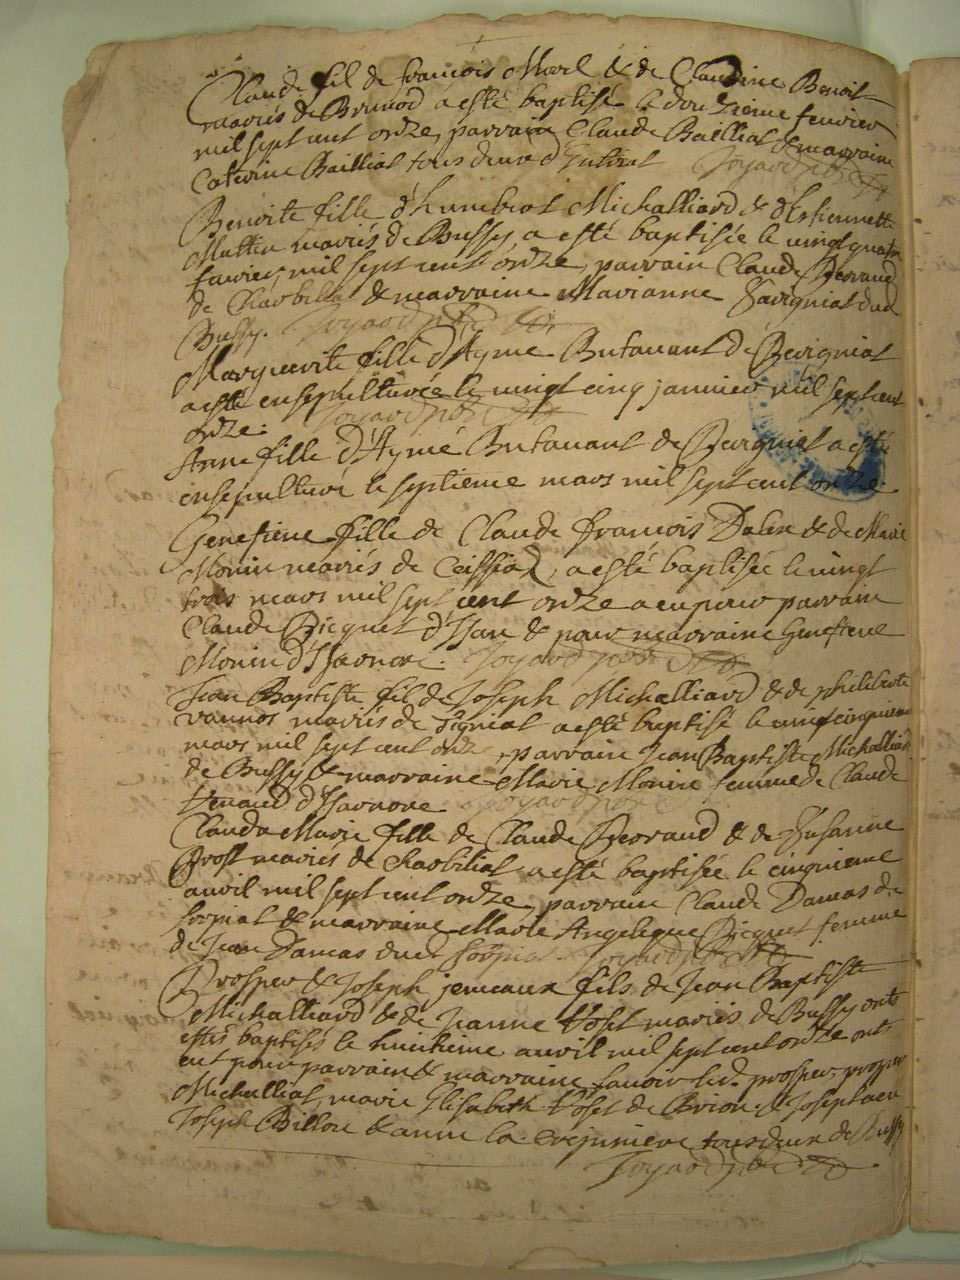 Claude fil de francois Morel & de Claudine Benoit
mariés de Brunod a esté baptisé le douzieme feuvrier
mil sept cent onze, parrain Claude Bailliat & marraine
Caterine Bailliat tous deux d'
Benoite fille d'humbert Michalliard & d'Estiennette
Mattin mariés de Bussy, a esté baptisée le vingt quatre
feuvrier mil sept cent onze, parrain Claude Perraud
de Charbilliat & marraine Marianne Savigniat dud
Bussy. Joyard
Marguerite fille d'Aymé Butavant de Revigniat
a esté ensepulturée le vingt cinq janvier mil sept cent
onze. Joyard
Anne fille d'Aymé Butavant de Revigniat a esté
ensepulturé le septieme mars mil sept cent onze.
Genefieve fille de Claude francois & de Marie
Monin mariés de Ceissiat, a esté baptisée le vingt
trois mars mil sept cent onze a eu pour parrain
Claude Picquet d' & pour marraine Genefieve
Monin d'Isarnore. Joyard
Jean Baptiste fil de Joseph Michalliard & de philiberte
vannos mariés de a esté baptisé le vingt cinquieme
mars mil sept cent onze, parrain Jean Baptiste Michalliard
de Bussy & marraine Marie Monin femme de Claude
d'Isarnore Joyard
Clauda Marie fille de Claude Perraud & de Susanne
Prost mariés de Charbilliat a esté baptisée le cinquieme
avril mil sept cent onze, parrain Claude Damas de
Sorpiat & marraine Marie Angelique Picquet femme
de Jean Damas dud Sorpiat. Joyard
Prosper & Joseph jemeaux fils de Jean Baptiste
Michalliard & de Jeanne mariés de Bussy onts
estés baptisés le huitieme avril mil sept cent onze ont
eut pour parrain & marraine savoir led. prosper, prosper
Michalliat, marie Elisabeth de Brion, & Joseph a eu
Joseph Billon & anne la tous deux de Bussy
Joyard